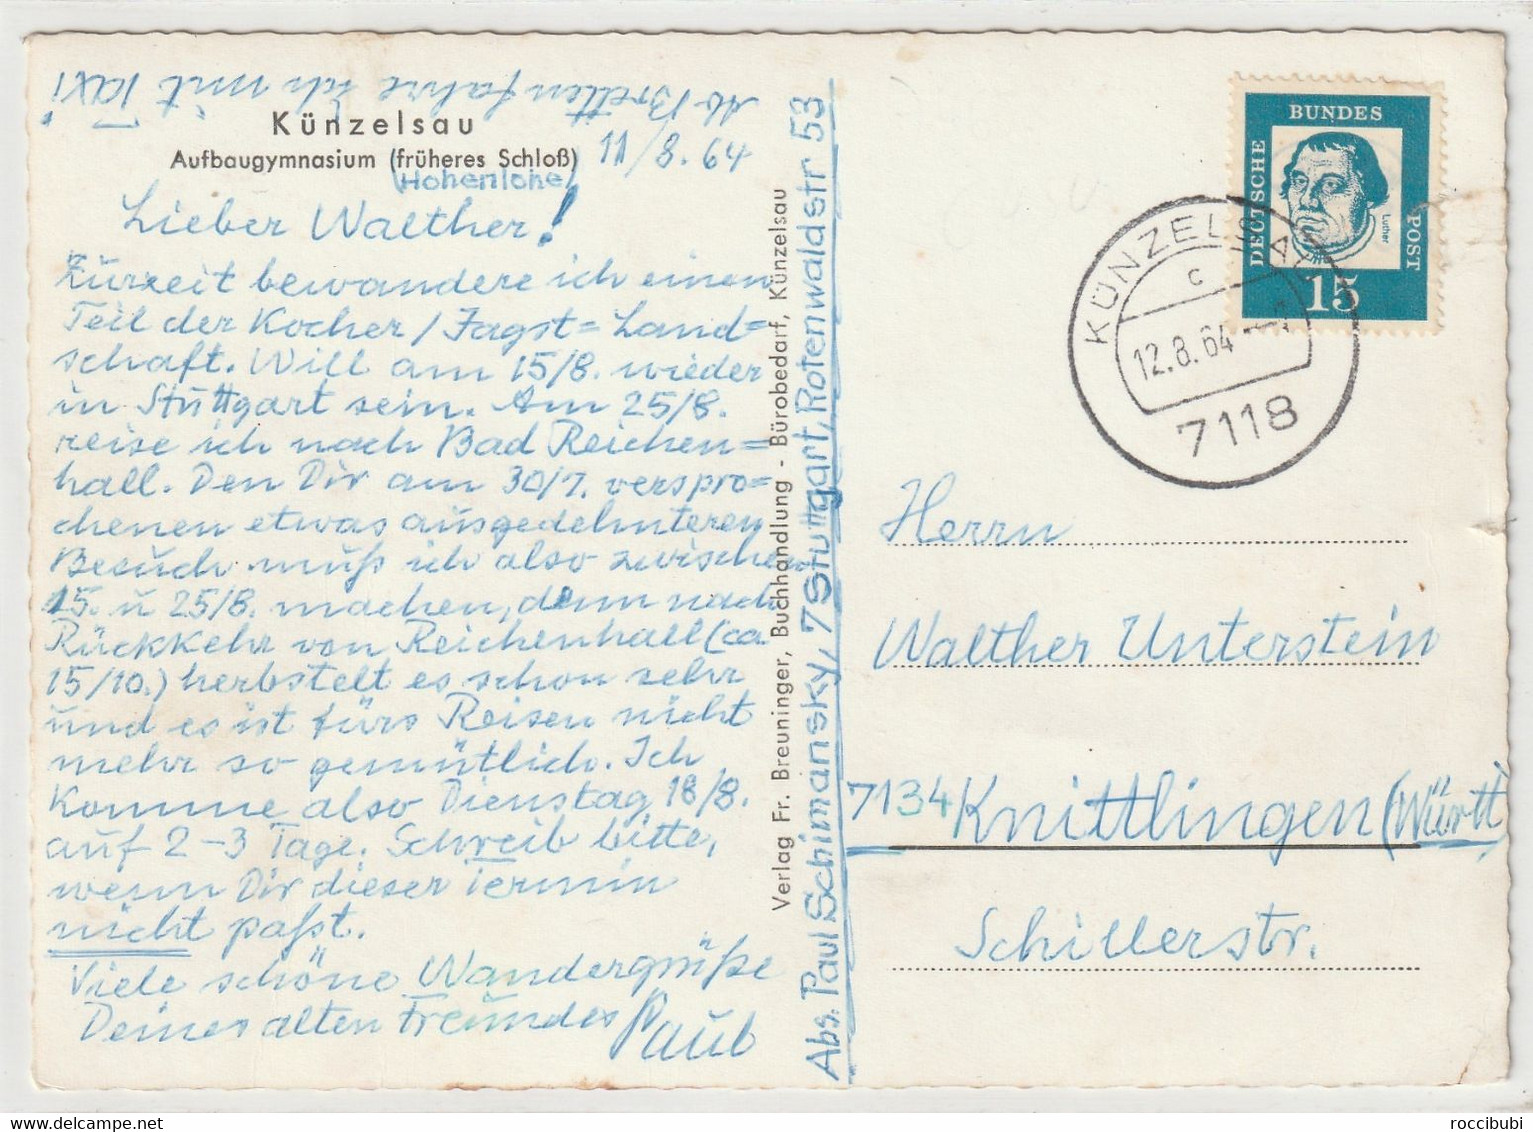 Ab Bretten fahre ich mit Taxi!
Künzelsau
Aufbaugymnasium (früheres Schloß)
(Hohenlohe)
11/8. 64
Lieber Walther!
Zurzeit bewandere ich einen
Teil der Kocher/Jagst=Land=
schaft. Will am 15/8. wieder
in Stuttgart sein. Am 25/8.
reise ich nach Bad Reichen=
hall. Den Dir am 30/7. verspro=
chenen etwas ausgedehnteren
Besuch muß ich also zwischen
15. u 25/8. machen, denn nach
Rückkehr von Reichenhall (ca
15/10.) herbstelt es schon sehr
und es ist fürs Reisen nicht
mehr so gemütlich. Ich
komme also Dienstag 18/8.
auf 2-3 Tage. Schreib bitte,
wenn Dir dieser Termin
nicht paßt.
Viele schöne Wandergrüße
Deines alten Freundes Paul
Verlag Fr. Breuninger, Buchhandlung - Bürobedarf, Künzelsau
Abs. Paul Schimansky, 7 Stuttgart, Rotenwaldstr 53
DEUTSCHE
BUNDES
POST
Luther
15
KÜNZELSAU
c
12.8.64
7118
Herrn
Walther Unterstein
7134 Knittlingen (Württ
Schillerstr.
roccibubi